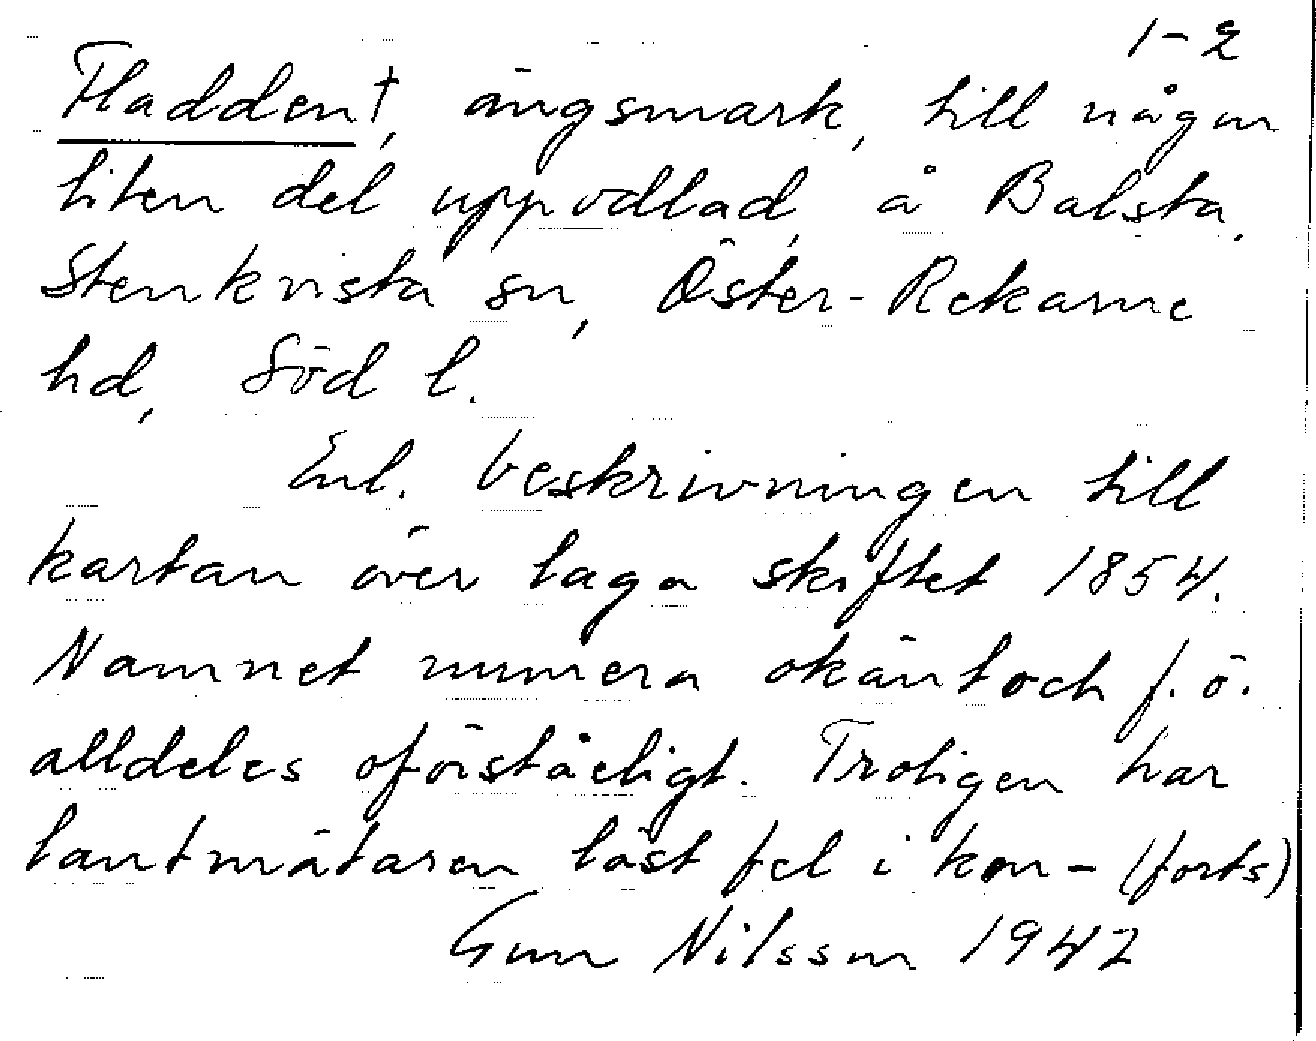 1-2
Fladden†, ängsmark, till någon
liten del uppodlad, å Balsta,
Stenkvista sn, Öster-Rekarne
hd, Söd l.
Enl. beskrivningen till
kartan över laga skiftet 1854.
Namnet numera okänt och f. ö.
alldeles oförståeligt. Troligen har
lantmätaren läst fel i kon- (forts)
Gun Nilsson 1942